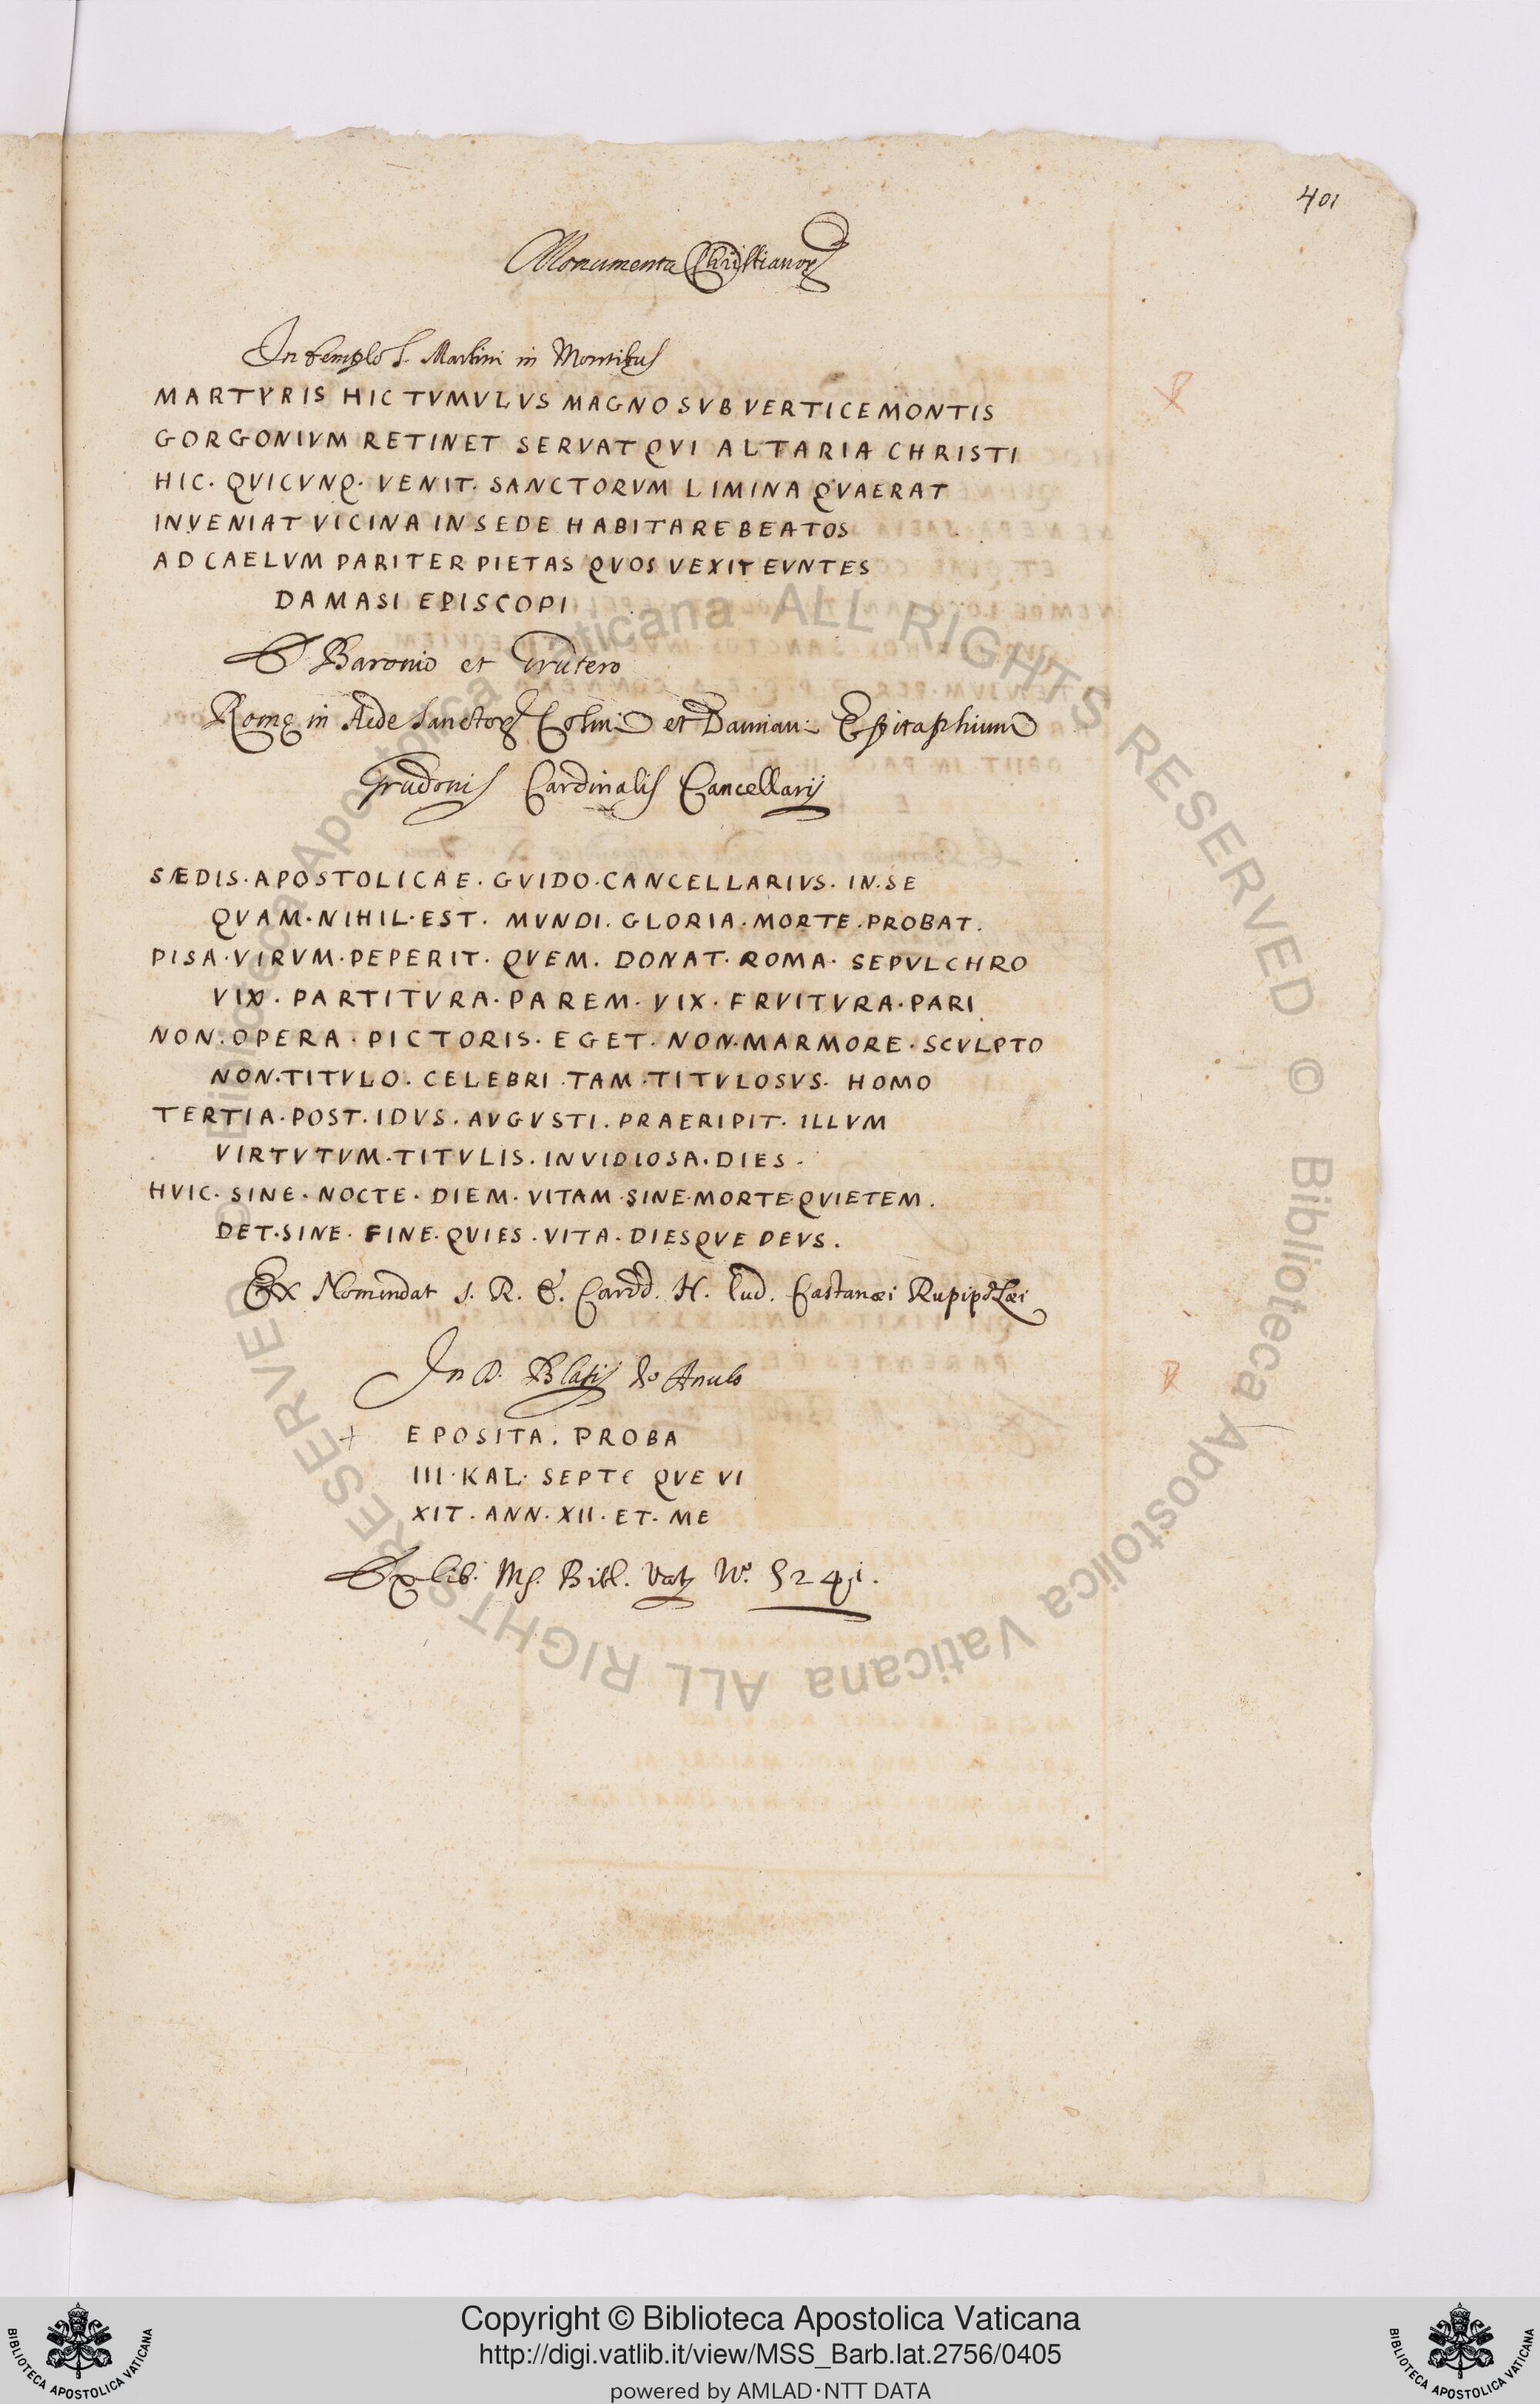 401
Monumenta Christianor
In templo S. Martini in Montibus
MARTYRIS HIC TVMVLVS MAGNO SVB VERTICE MONTIS
GORGONIVM RETINET SERVAT QVI ALTARIA CHRISTI
HIC. QVICVNQ. VENIT. SANCTORVM LIMINA QVAERAT
INVENIAT VICINA IN SEDE HABITARE BEATOS
AD CAELVM PARITER PIETAS QVOS VEXIT EVNTES
DAMASI EPISCOPI
Baronio et Grutero
Romę in Aede Sanctor Cosmę et Damiani Epitaphium
Guidonis Cardinalis Cancellarij
SÆDIS. APOSTOLICAE. GVIDO. CANCELLARIVS. IN. SE
QVAM. NIHIL. EST. MVNDI. GLORIA. MORTE. PROBAT.
PISA. VIRVM. PEPERIT. QVEM. DONAT. ROMA. SEPVLCHRO
VIX. PARTITVRA. PAREM. VIX. FRVITVRA. PARI
NON. OPERA. PICTORIS. EGET. NON. MARMORE. SCVLPTO
NON. TITVLO. CELEBRI. TAM. TITVLOSVS. HOMO
TERTIA. POST. IDVS. AVGVSTI. PRAERIPIT. ILLVM
VIRTVTVM. TITVLIS. INVIDIOSA. DIES.
HVIC. SINE. NOCTE. DIEM. VITAM. SINE. MORTE. QVIETEM.
DET. SINE. FINE. QVIES. VITA. DIESQVE DEVS.
Ex Nomindat S. R. E. Cardd. H. Lud. Castanæi Rupipozæi
In D. Blasij de Anulo
+ EPOSITA. PROBA
III. KAL. SEPTE QVE VI
XIT. ANN. XII. ET. ME
Ex lib. Ms. Bibl. Vat. N.º 5241.
© Biblioteca Apostolica Vaticana ALL RIGHTS RESERVED © Biblioteca Apostolica Vaticana ALL RIGHTS RESERVED
Copyright © Biblioteca Apostolica Vaticana
http://digi.vatlib.it/view/MSS_Barb.lat.2756/0405
powered by AMLAD·NTT DATA
BIBLIOTECA APOSTOLICA VATICANA
BIBLIOTECA APOSTOLICA VATICANA